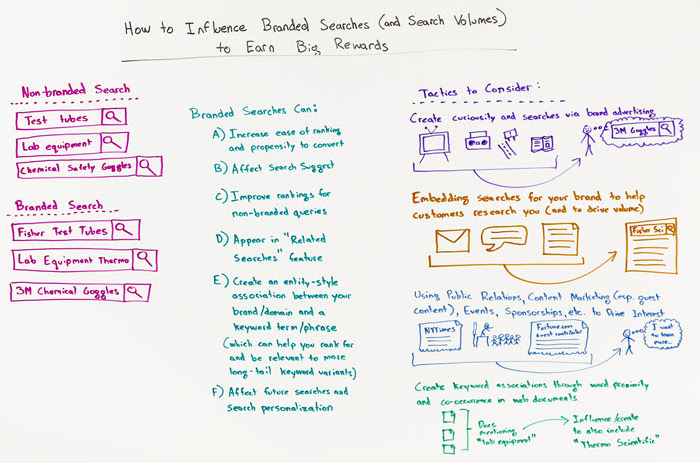 How to Influence Branded Searches (and Search Volumes)
to Earn Big Rewards
Non-branded Search
Test tubes
Lab equipment
Chemical Safety Goggles
Branded Search
Fisher Test Tubes
Lab Equipment Thermo
3M Chemical Goggles
Branded Searches Can:
A) Increase ease of ranking
and propensity to convert
B) Affect Search Suggest
C) Improve rankings for
non-branded queries
D) Appear in "Related
Searches" feature
E) Create an entity-style
association between your
brand/domain and a
keyword term/phrase
(which can help you rank for
and be relevant to more
long-tail keyword variants)
F) Affect future searches and
search personalization
Tactics to Consider:
Create curiosity and searches via brand advertising
3M Goggles
Embedding searches for your brand to help
customers research you (and to drive volume)
Fisher Sci
Using Public Relations, Content Marketing (esp. guest
content), Events, Sponsorships, etc. to Drive Interest
NYTimes
Fortune.com
Guest contributor
I want
to learn
more...
Create keyword associations through word proximity
and co-occurrence in web documents
Docs
mentioning
"lab equipment"
Influence/create
to also include
"Thermo Scientific"